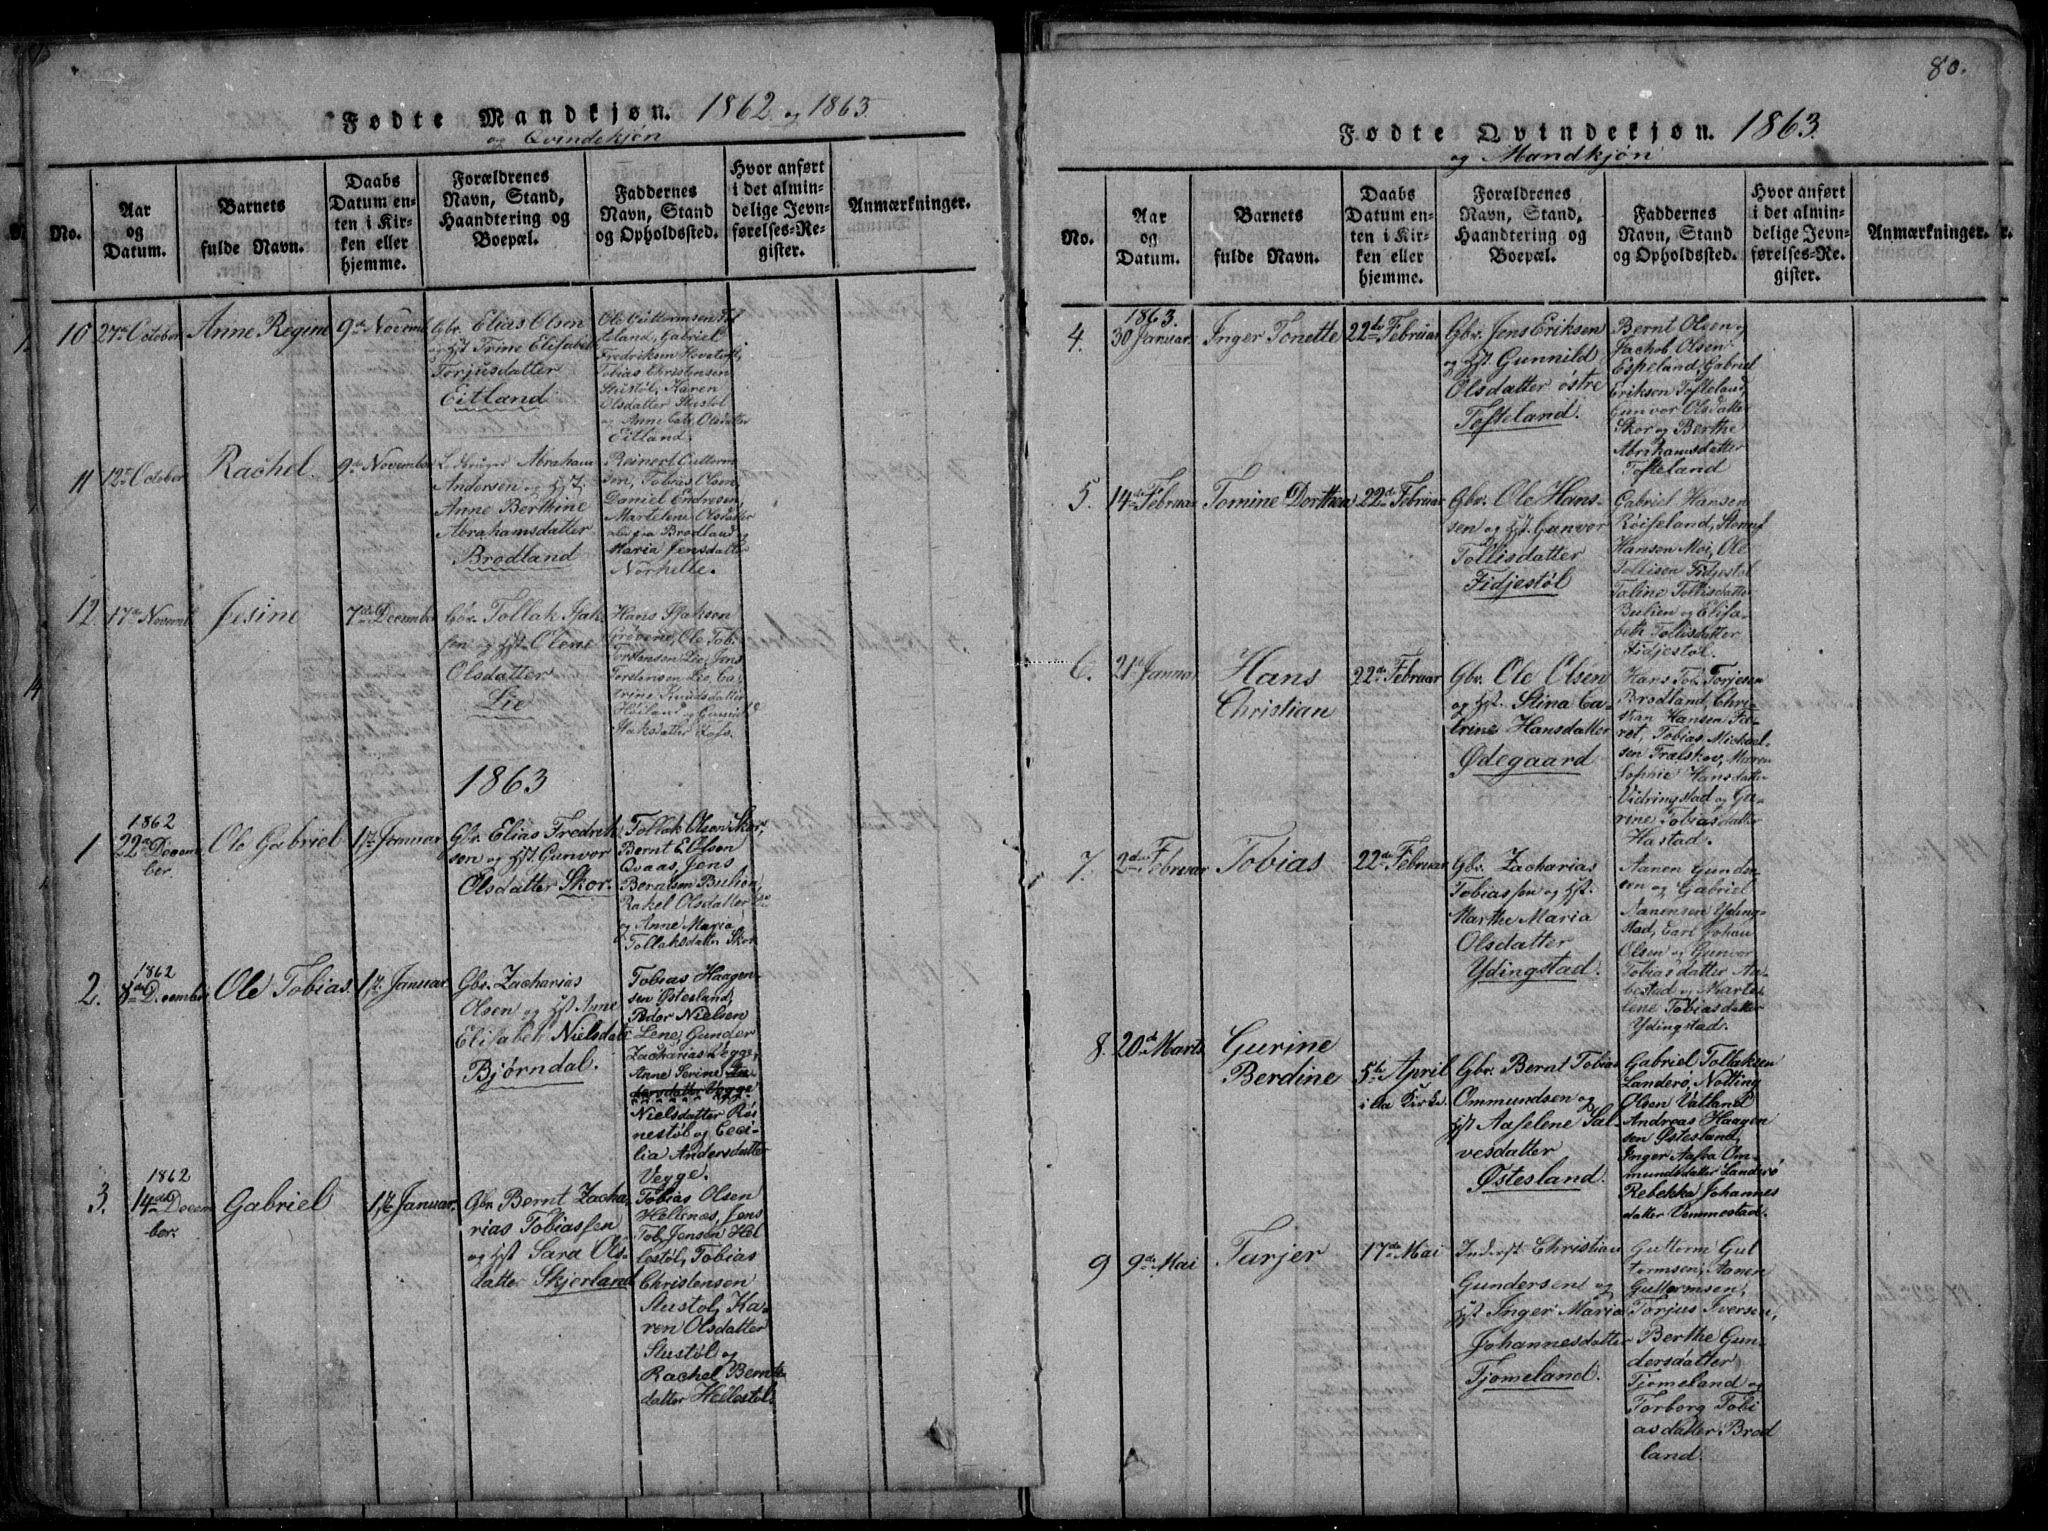 Fødte Mandkjøn. 1862 og 1863
og Qvindekjøn
No.
Aar og Datum.
Barnets fulde Navn.
Daabs Datum enten i Kirken eller hjemme.
Forældrenes Navn, Stand, Haandtering og Boepæl.
Faddernes Navn, Stand og Opholdssted.
Hvor anført i det almindelige Jevnførelses-Register.
Anmærkninger.
10 27de October Anne Regine 9de Novemb.
Gbr. Elias Olsen
og Hst Trine Elisabet
Torjusdatter
Eitland
Ole Guttormsen Eitland, Gabriel
Fredriksen
Tobias Christensen
Stustøl, Karen
Olsdatter Stustøl
og Anne Cath. Olsdatter
Eitland.
11 12te October Rachel 9de November
Abraham
Andersen og Hst
Anne Berthine
Abrahamsdatter
Brødland
Reinert Guttorm
sen, Tobias Olsen
Daniel Endresen,
Martelene Olsdatter
Brødland og
Maria Jensdatter
Norhelle.
12. 17de Novemb. Jesine 7de December
Gbr. Tollak Isak
sen og Hst Olene
Olsdatter
Lie
Hans Isaksen
Grövene, Ole Tob.
Torstensen Lie, Jens
Torstensen Lie, Ca
trine Knudsdatter
Heiland og Gunild
Isaksdatter
1863
1 1862 22de December Ole Gabriel 1ste Januar
Gbr. Elias Fredrik
sen og Hst Gunvor
Olsdatter Skor.
Tollak Olsen Skor,
Bernt E. Olsen
Qvaas, Jens
Berntsen Buhen,
Rakel Olsdatter
og Anne Maria
Tollaksdatter Skor
2. 1862 8de December Ole Tobias. 1ste Januar.
Gbr. Zacharias
Olsen og Hst Anne
Elisabeth Nielsdatr
Bjørndal.
Tobias Haagen
sen Østesland,
Peder Nielsen
Lene, Gunder
Zacharias. Vegge,
Anne Serine
Nielsdatter Røs
nestøl og Ceci
lia Andersdatter
Vegge.
3. 1862 14de December. Gabriel 1ste Januar.
Gbr. Bernt Zacha
rias Tobiassen
og Hst Sara Ols
datter Skjerland
Tobias Olsen
Hellenæs, Jens
Tob. Jensen Hel
lestøl, Tobias
Christensen
Stustøl, Ka
ren Olsdatter
Stustøl og
Rachel Berntz
datter Heilestøl.
80.
Fødte Qvindekjøn. 1863.
og Mandkjøn
No.
Aar og Datum.
Barnets fulde Navn.
Daabs Datum enten i Kirken eller hjemme.
Forældrenes Navn, Stand, Haandtering og Boepæl.
Faddernes Navn, Stand og Opholdssted.
Hvor anført i det almindelige Jevnførelses-Register.
Anmærkninger.
4. 1863. 30 Januar. Inger Tonette 22de Februar
Gbr. Jens Eriksen
og Hst. Gunnild
Olsdatter østre
Tofteland.
Bernt Olsen og
Jachob Olsen
Espeland, Gabriel
Eriksen Tofteland,
Gunvor Olsdatter
Skor og Berthe
Abrahamsdatter
Tofteland
5. 14de Februar Tomine Dorthea 22de Februar
Gbr. Ole Hans
sen og Hst. Gunvor
Tollisdatter
Fidjestøl
Gabriel Hansen
Röiseland,
Hansen Moi, Ole
Tollisen Fidjestøl
Taline Tollisdatter
Buhen og Elisa
beth Tollisdatter
Fidjestøl.
6. 21de Januar Hans
Christian 22de Februar
Gbr. Ole Olsen
og Hst. Stina Ca
trine Hansdatter
Ødegaard
Hans Tob. Torjesen
Brødland, Chri
stian Hansen
Tobias Michael
sen Trælskor, Maren
Sophie Hansdatter
Vidringstad og Ga
rine Tobiasdatter
Hastad.
7. 2den Februar Tobias 22de Februar.
Gbr. Zacharias
Tobiassen og Hst.
Marthe Maria
Olsdatter
Ydingstad.
Aanen Gunder
sen og Gabriel
Aanensen Yding
stad, Carl Johan
Olsen og Gunvor
Tobiasdatter Aa
bestad og Marte
lene Tobiasdatter
Ydingstad.
8. 20de Marts Gurine
Berdine 5te April
i Aa Kirke.
Gbr. Bernt Tobias
Ommundsen og
Hst Aaselene Sal
vesdatter
Østesland.
Gabriel Tollaksen
Landerø, Notting
Olsen Vatland
Andreas Haagen
sen Østesland,
Inger Aasta Om
mundsdatter Landerø
Rebekka Johannes
datter Vemmestad.
9 9de Mai Tarjer 17de Mai
Inderst Christian
Gundersen og
Hst Inger Maria
Johannesdatter
Tjomeland.
Guttorm Gut
tormsen, Aanen
Guttormsen,
Torjus Iversen,
Berthe Gun
dersdatter
Tjomeland og
Torborg Tobi
asdatter Brød
land.